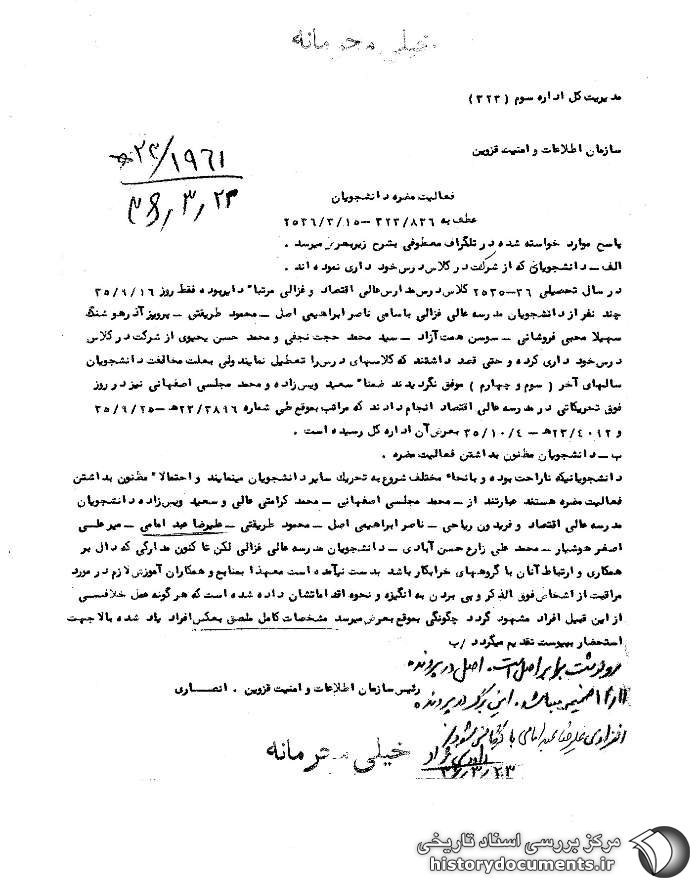 خیلی محرمانه
مدیریت کل اداره سوم (۳۲۳)
سازمان اطلاعات و امنیت قزوین
۲۳/۱۹۶۱ ه
۳۶٫۳٫۲۳
فعالیت مضره دانشجویان
عطف به ۳۲۳/۸۲۶ – ۲۵۳۶/۳/۱۵
پاسخ موارد خواسته شده در تلگراف معطوفی بشرح زیر بعرض میرسد .
الف – دانشجویانی که از شرکت در کلاس درس خود داری نموده اند .
در سال تحصیلی ۳۶–۲۵۳۵ کلاس درس مدارس عالی اقتصاد و غزالی مرتبا" دایر بوده فقط روز ۳۵/۹/۱۶
چند نفر از دانشجویان مدرسه عالی غزالی باسامی ناصر ابراهیمی اصل – محمود طریقتی – پرویز آذر هوشنگ
سهیلا محبی فروشانی – سوسن همت آزاد – سید محمد حجت نجفی و محمد حسن یحیوی از شرکت در کلاس
درس خود داری کرده و حتی قصد داشتند که کلاسهای درس را تعطیل نمایند ولی بعلت مخالفت دانشجویان
سالهای آخر (سوم و چهارم) موفق نگردیدند ضمنا" سعید ویس زاده و محمد مجلسی اصفهانی نیز در روز
فوق تحریکاتی در مدرسه عالی اقتصاد انجام دادند که مراتب بموقع طی شماره ۲۳/۳۸۹۶ ه – ۳۵/۹/۲۵
و ۲۳/۴۰۹۲ ه – ۳۵/۱۰/۴ بعرض آن اداره کل رسیده است .
ب – دانشجویان مظنون بداشتن فعالیت مضره .
دانشجویانیکه ناراحت بوده و بانحاء مختلف شروع به تحریک سایر دانشجویان مینمایند و احتمالا" مظنون بداشتن
فعالیت مضره هستند عبارتند از – محمد مجلسی اصفهانی – محمد کرامتی عالی و سعید ویس زاده دانشجویان
مدرسه عالی اقتصاد و فریدون ریاحی – ناصر ابراهیمی اصل – محمود طریقتی – علیرضا عبد امامی – میر علی
اصغر هوشیار – محمد علی زارع حسن آبادی – دانشجویان مدرسه عالی غزالی لکن تا کنون مدارکی که دال بر
همکاری و ارتباط آنان با گروههای خرابکار باشد بدست نیامده است معهذا بمنابع و همکاران آموزش لازم در مورد
مراقبت از اشخاص فوق الذکر و پی بردن به انگیزه و نحوه اقداماتشان داده شده است که هر گونه عمل خلافی
از این قبیل افراد مشهود گردد چگونگی بموقع بعرض میرسد مشخصات کامل ملصق بعکس افراد یاد شده بالا جهت
استحضار بپیوست تقدیم میگردد /ب
رونوشت برابر اصل است. اصل در پرونده
ضمیمه میباشد. این برگ در پرونده
رئیس سازمان اطلاعات و امنیت قزوین . انصاری
انفرادی علیرضا عبد امامی بایگانی شود/
داودی نژاد
۳۶٫۳٫۲۳
خیلی محرمانه
مرکز بررسی اسناد تاریخی
historydocuments.ir